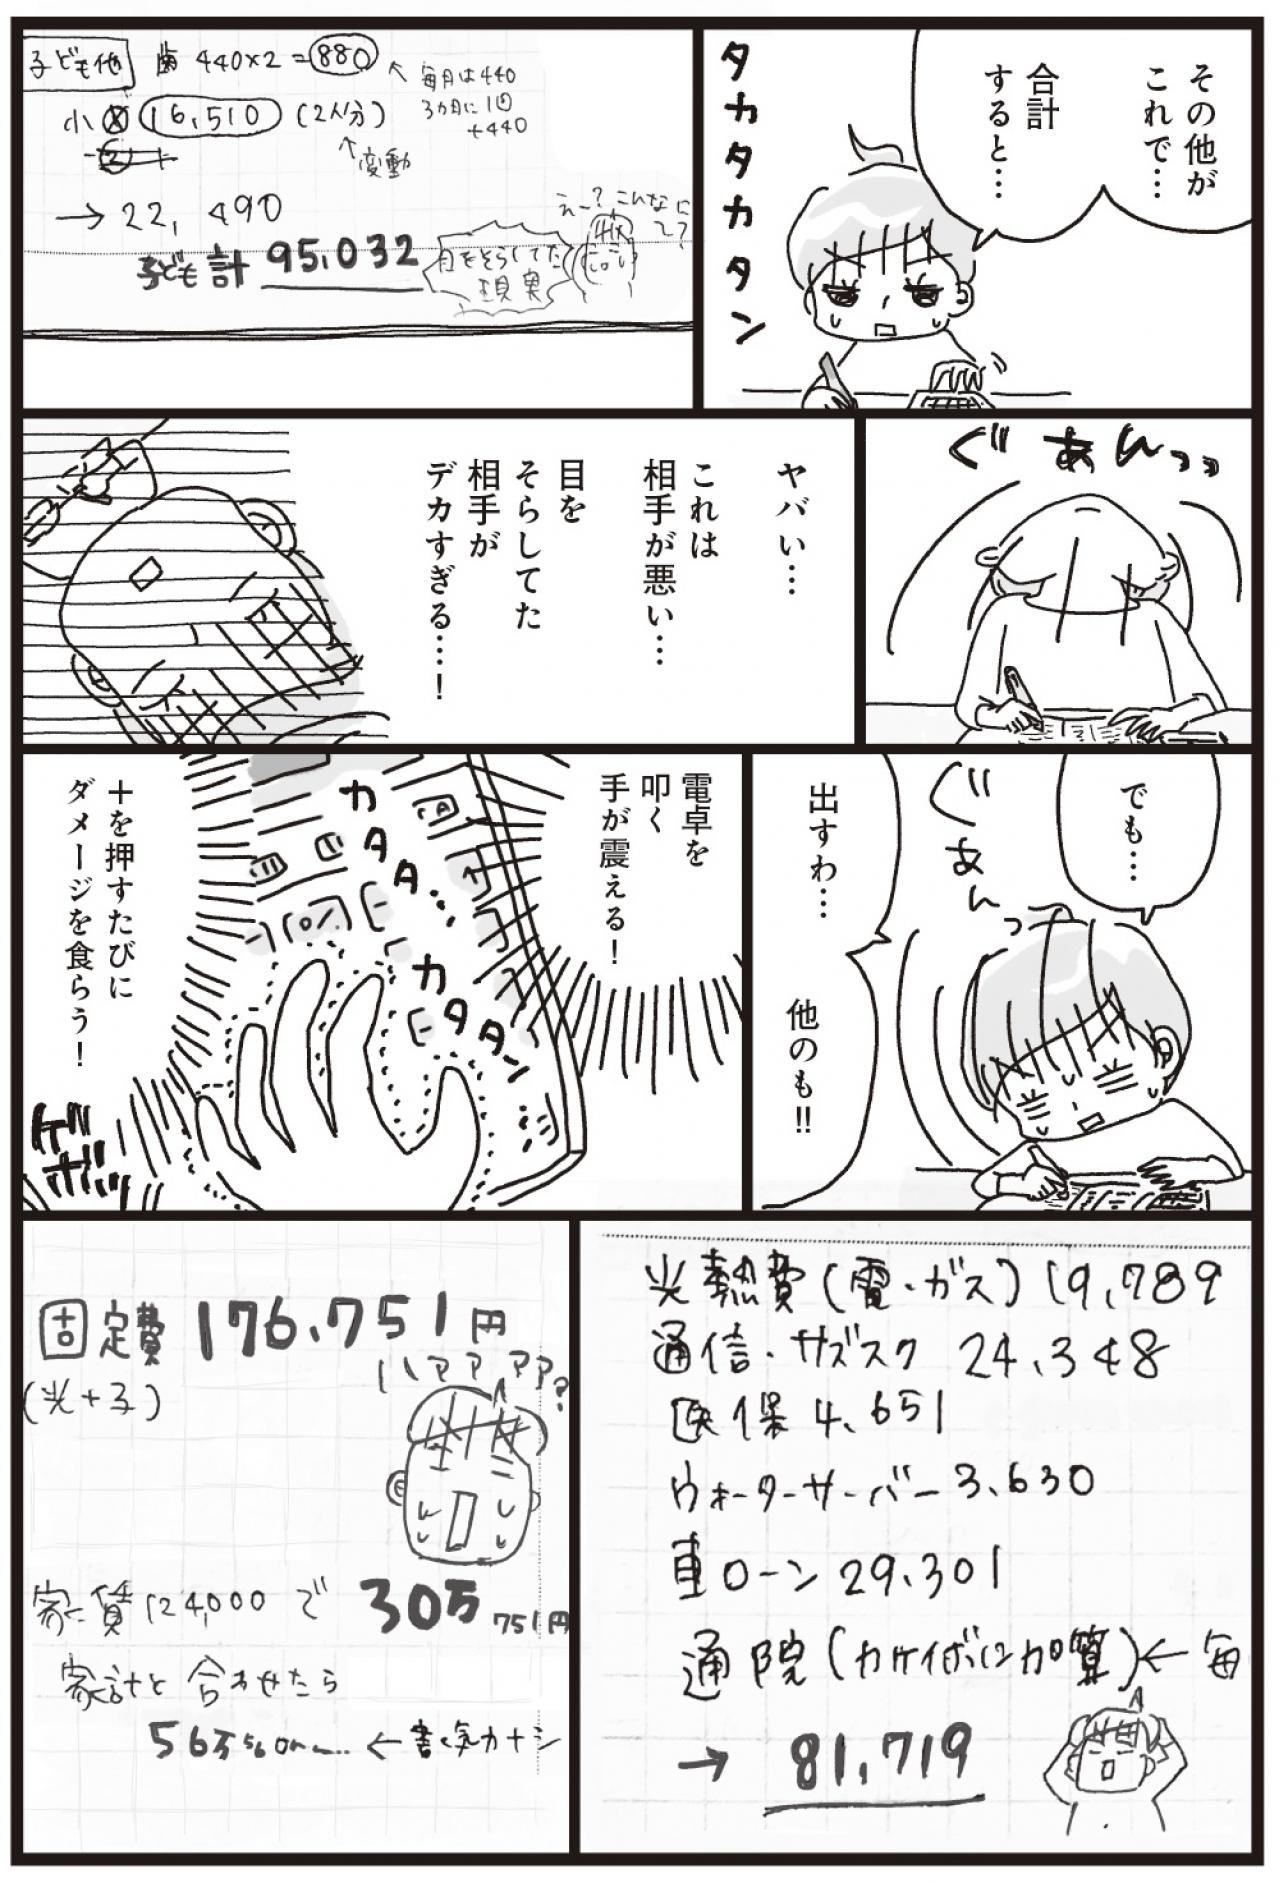 その他が
これで…
合計
すると…
タカタカタン
子ども他 歯 440×2=880
毎月は440
3カ月に1回
+440
16,510 (2人分)
変動
→ 22,490
子ども計 95,032
目をそらしてた
現実
えー?こんなに
ぐあんっっ
ヤバい…
これは
相手が悪い…
目を
そらしてた
相手が
デカすぎる…!
でも…
ぐあんっ
出すわ…
他のも!!
電卓を
叩く
手が震える!
カタタ…
カタタン
+を押すたびに
ダメージを食らう!
光熱費(電・ガス) 19,789
通信・サブスク 24,348
医保 4,651
ウォーターサーバー 3,630
車ローン 29,301
通院(カケイボに加算)←毎
→ 81,719
固定費 176,751円
(光+子)
ハアアアア?
家賃124,000で 30万751円
家計と合わせたら
56万
←書く気力ナシ